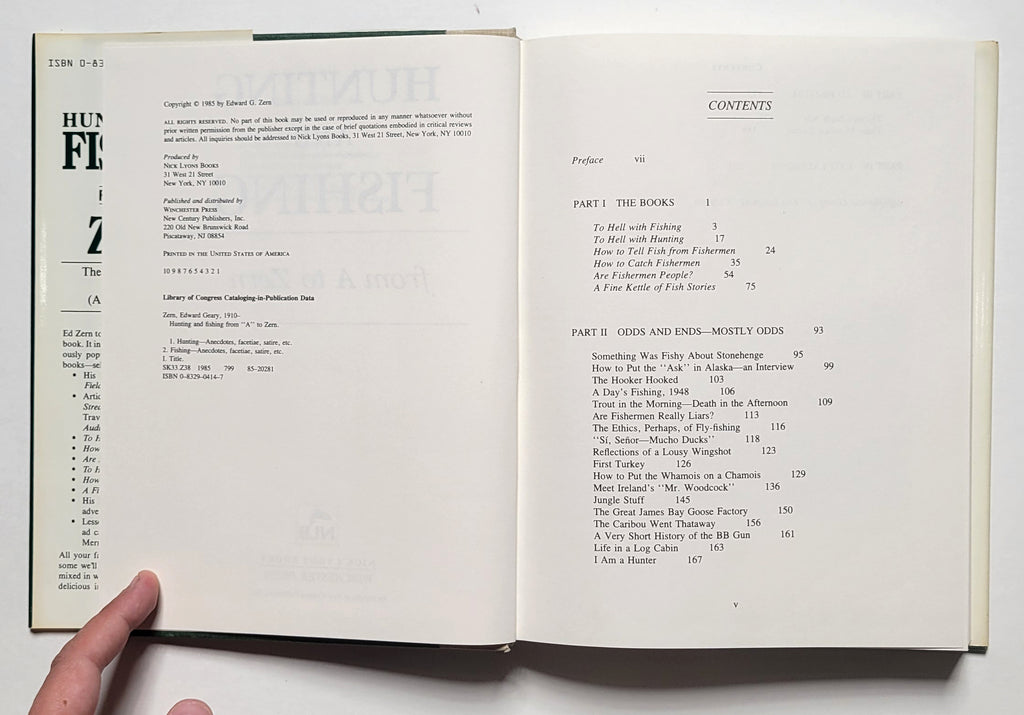 ISBN 0-83
HUN
FIS
Z
The
(A
Ed Zern to
book. It in
ously pop
books—se
• His
Field
• Artic
Stree
Trav
Audi
• To H
• How
• Are
• To H
• How
• A Fi
• His
adve
• Less
ad c
Merr
All your f
some we'll
mixed in w
delicious i
Copyright © 1985 by Edward G. Zern
ALL RIGHTS RESERVED. No part of this book may be used or reproduced in any manner whatsoever without
prior written permission from the publisher except in the case of brief quotations embodied in critical reviews
and articles. All inquiries should be addressed to Nick Lyons Books, 31 West 21 Street, New York, NY 10010
Produced by
NICK LYONS BOOKS
31 West 21 Street
New York, NY 10010
Published and distributed by
WINCHESTER PRESS
New Century Publishers, Inc.
220 Old New Brunswick Road
Piscataway, NJ 08854
PRINTED IN THE UNITED STATES OF AMERICA
10 9 8 7 6 5 4 3 2 1
Library of Congress Cataloging-in-Publication Data
Zern, Edward Geary, 1910–
Hunting and fishing from "A" to Zern.
1. Hunting—Anecdotes, facetiae, satire, etc.
2. Fishing—Anecdotes, facetiae, satire, etc.
I. Title.
SK33.Z38 1985 799 85-20281
ISBN 0-8329-0414-7
CONTENTS
Preface vii
PART I THE BOOKS 1
To Hell with Fishing 3
To Hell with Hunting 17
How to Tell Fish from Fishermen 24
How to Catch Fishermen 35
Are Fishermen People? 54
A Fine Kettle of Fish Stories 75
PART II ODDS AND ENDS—MOSTLY ODDS 93
Something Was Fishy About Stonehenge 95
How to Put the "Ask" in Alaska—an Interview 99
The Hooker Hooked 103
A Day's Fishing, 1948 106
Trout in the Morning—Death in the Afternoon 109
Are Fishermen Really Liars? 113
The Ethics, Perhaps, of Fly-fishing 116
"Sí, Señor—Mucho Ducks" 118
Reflections of a Lousy Wingshot 123
First Turkey 126
How to Put the Whamois on a Chamois 129
Meet Ireland's "Mr. Woodcock" 136
Jungle Stuff 145
The Great James Bay Goose Factory 150
The Caribou Went Thataway 156
A Very Short History of the BB Gun 161
Life in a Log Cabin 163
I Am a Hunter 167
v